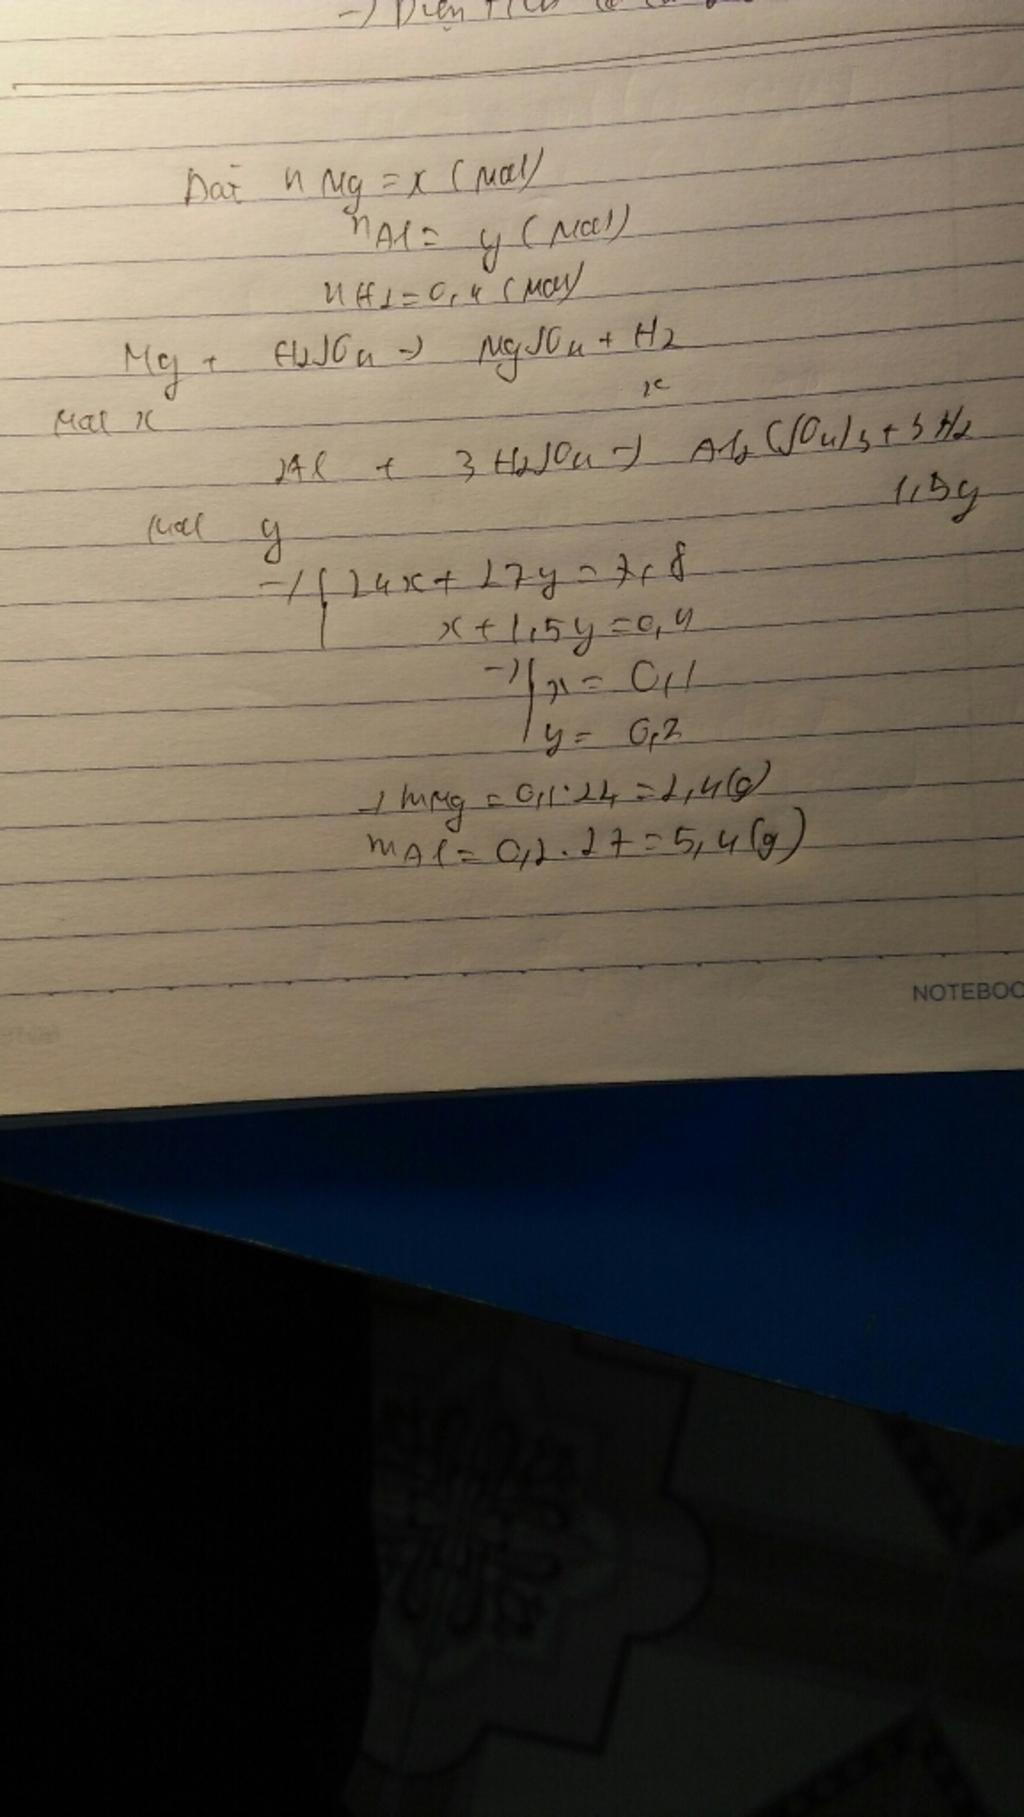 Đặt nMg = x (mol)
nAl = y (mol)
nH2 = 0,4 (mol)
Mg + H2SO4 -> MgSO4 + H2
mol x x
2Al + 3H2SO4 -> Al2(SO4)3 + 3H2
mol y 1,5y
-> { 24x + 27y = 7,8
x + 1,5y = 0,4
-> { x = 0,1
y = 0,2
-> mMg = 0,1.24 = 2,4(g)
mAl = 0,2.27 = 5,4(g)
NOTEBOO